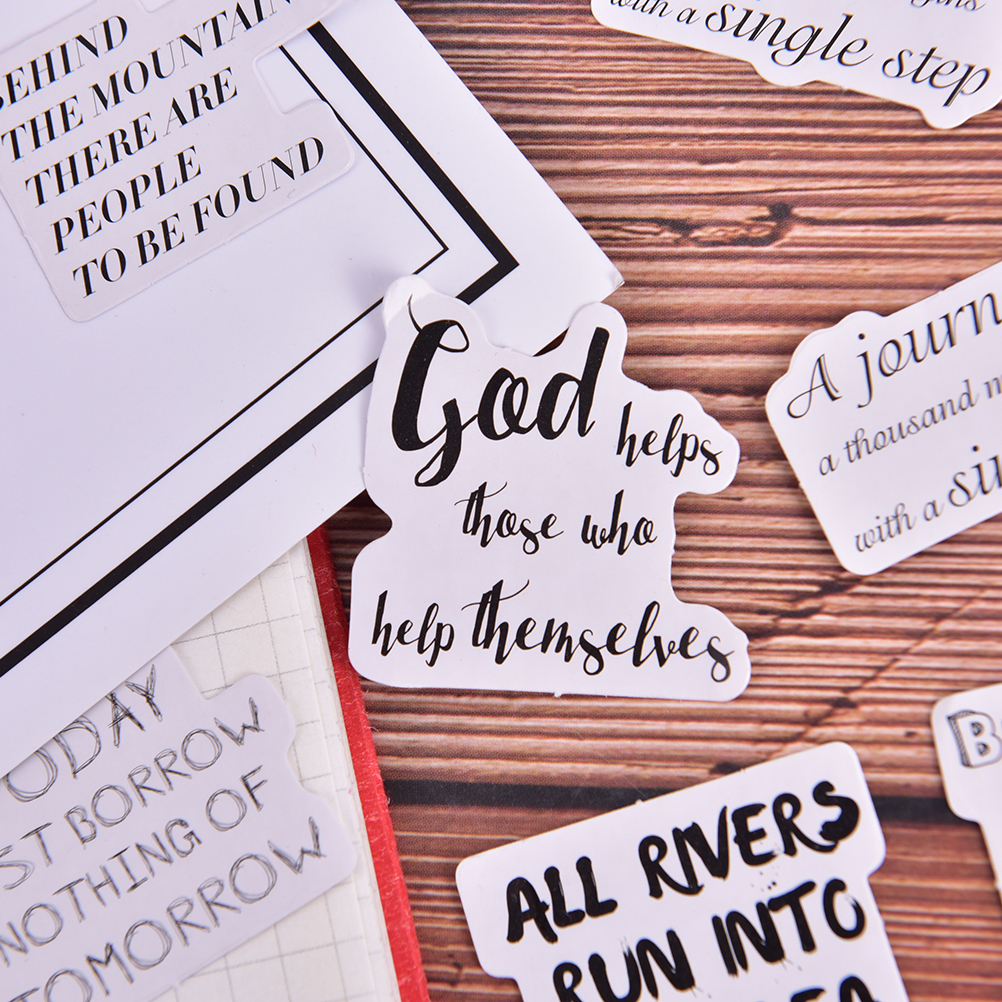 BEHIND
THE MOUNTAIN
THERE ARE
PEOPLE
TO BE FOUND
with a single step
God helps
those who
help themselves
A journ
a thousand m
with a sin
ODAY
ST BORROW
NOTHING OF
TOMORROW
ALL RIVERS
RUN INTO